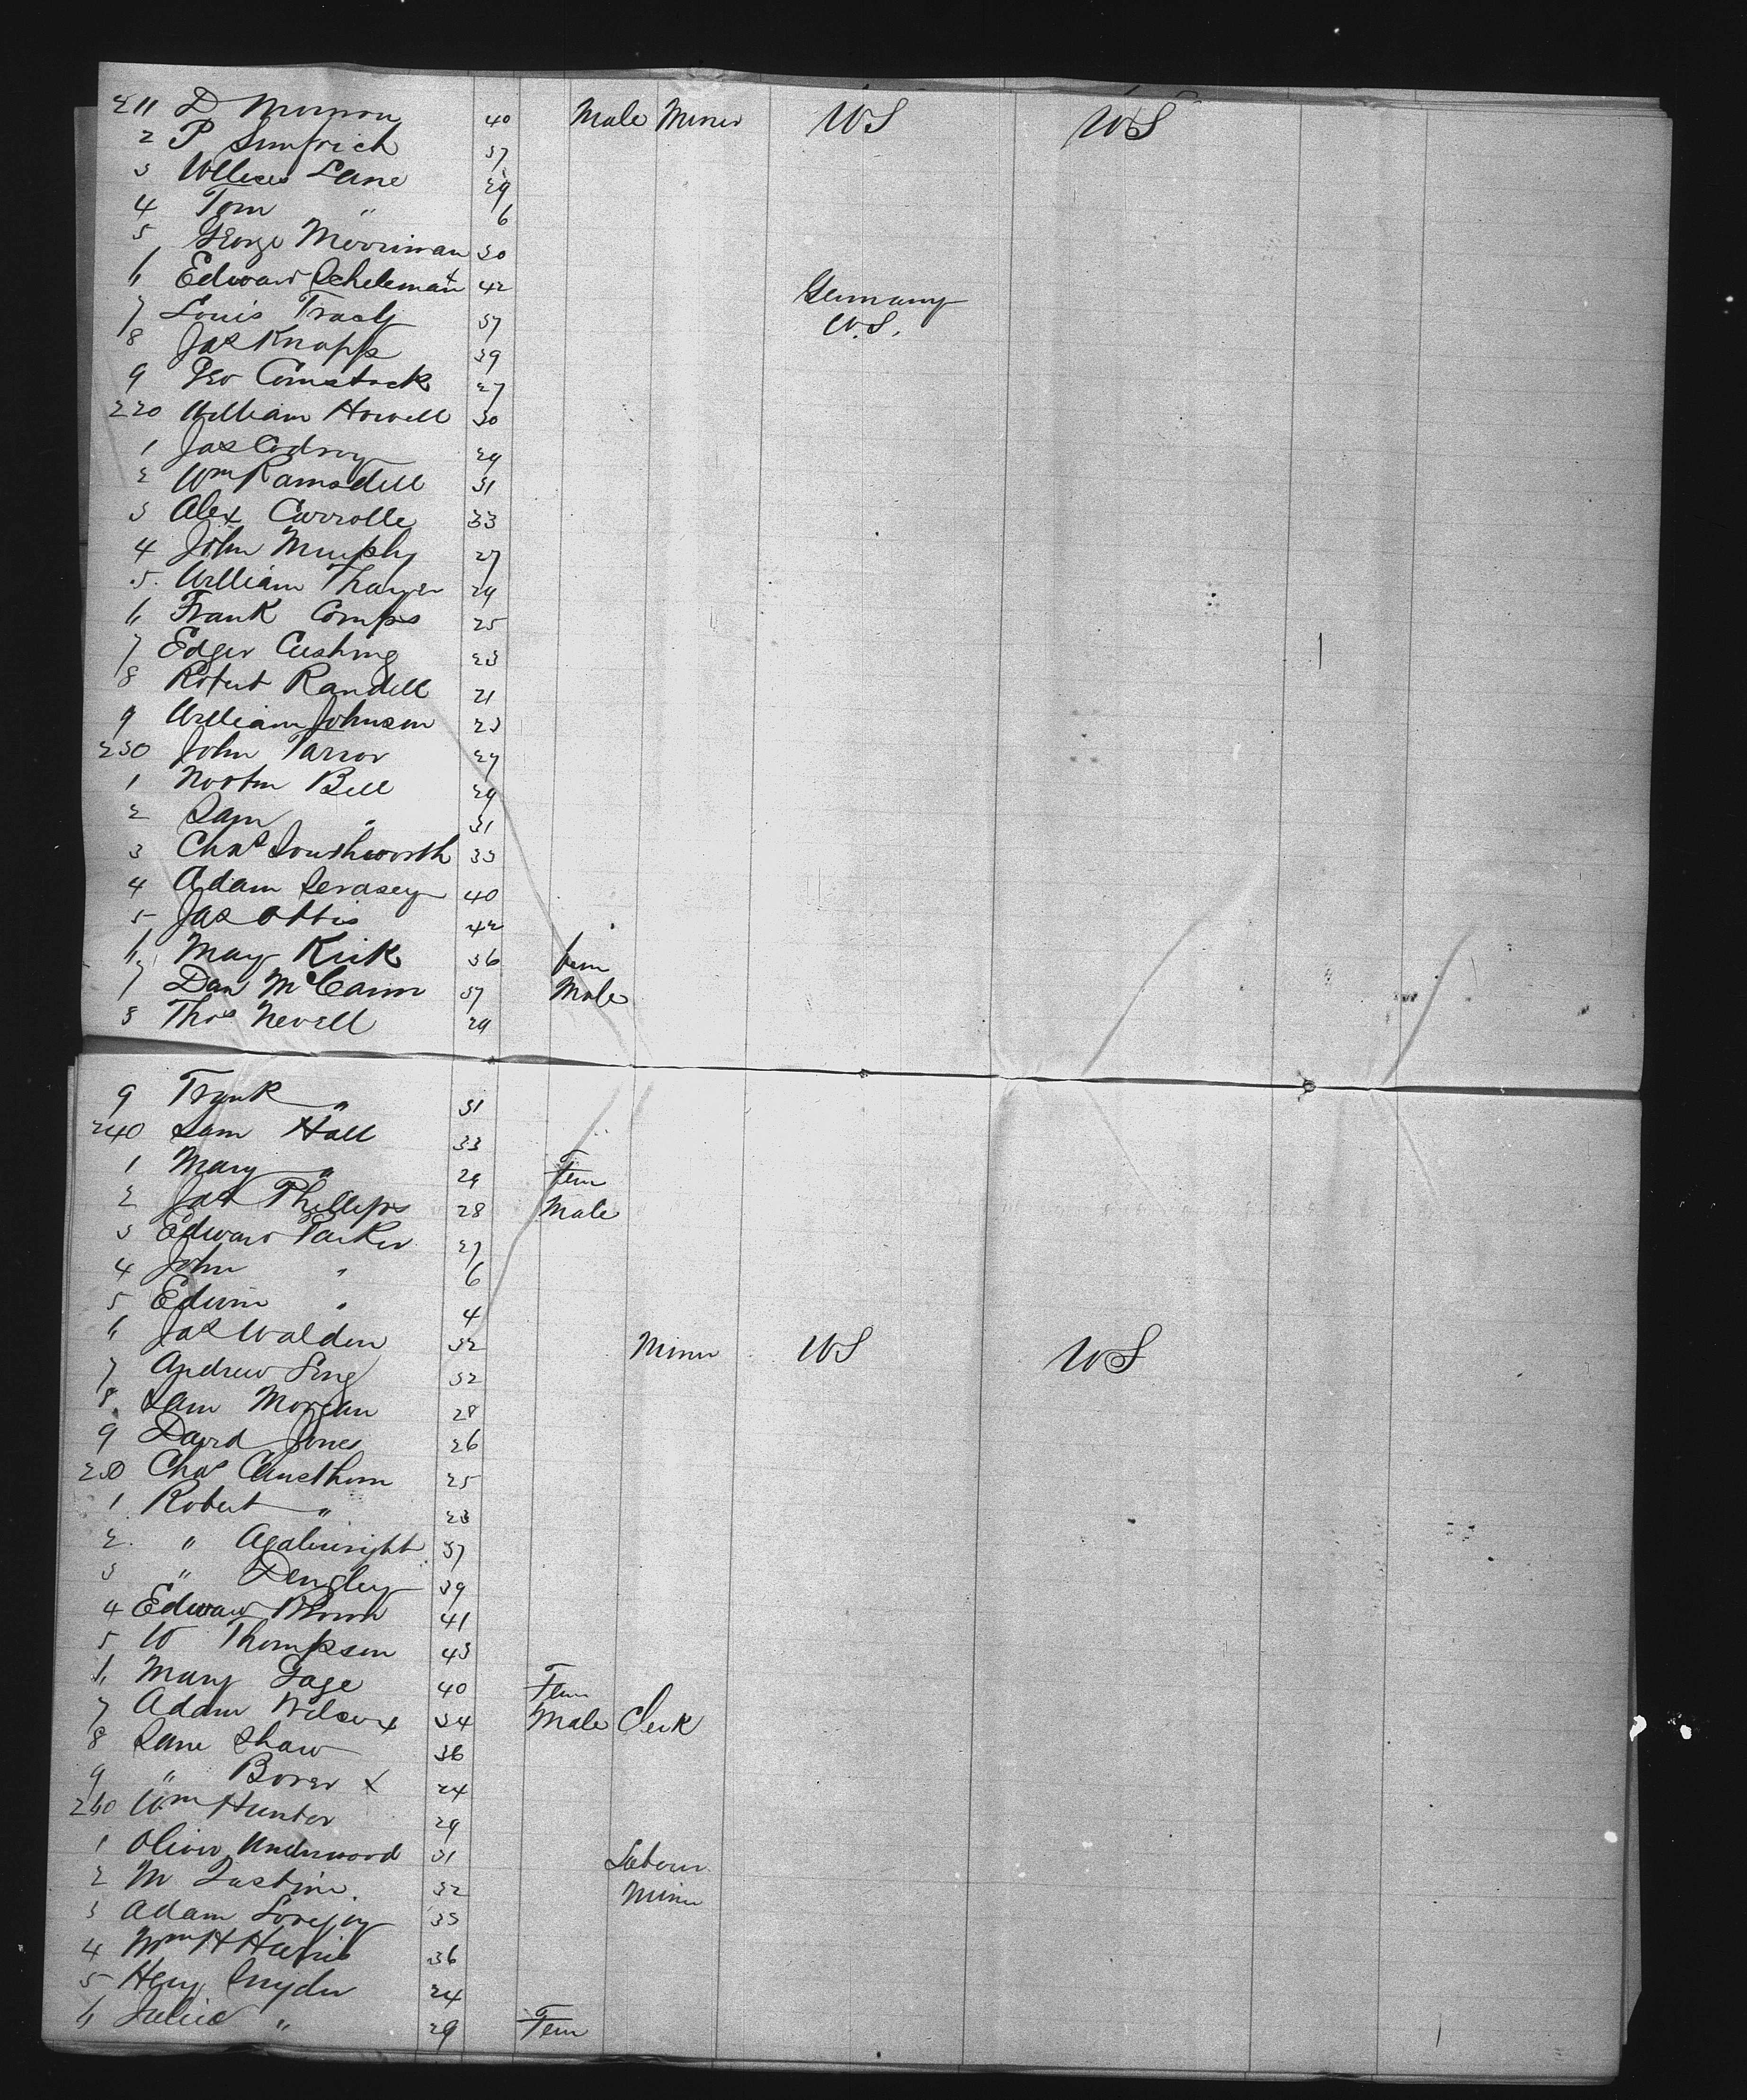 211 D Morrison 40 Male Miner US US
2 P Simfrich 37
3 Ulleses Lane 29
4 Tom " 6
5 George Merriman 30
6 Edward Scheleman 42 Germany
7 Louis Tracly 37 U.S.
8 Jas Knapp 39
9 Geo Comstock 27
220 William Howell 30
1 Jas Codroy 29
2 Wm Ramsdell 31
3 Alex Carrolle 33
4 John Murphy 27
5 William Thayer 29
6 Frank Comps 25
7 Edger Cushing 23
8 Robert Randell 21
9 William Johnson 23
230 John Tarror 27
1 Norton Bell 29
2 Sam " 31
3 Chas Southworth 33
4 Adam 40
5 Jas Ottis 42
6 May Kirk 36 fem
7 Dan McCann 37 Male
8 Thos Nevell 29
9 Frank " 31
240 Sam Hall 33
1 Mary " 29 Fem
2 Jas Phillips 28 Male
3 Edward Parker 27
4 John " 6
5 Edwin " 4
6 Jas Walden 32 Miner US US
7 Andrew Sing 32
8 Sam Morgan 28
9 David Jones 26
250 Chas 25
1 Robert " 23
2 " 37
3 " Dengley 39
4 Edward Brown 41
5 W Thompson 43
6 Mary Gage 40 Fem
7 Adam Wilcox 34 Male Clerk
8 Sam Shaw 36
9 " Borer x 24
260 Wm Hunter 29
1 Oliver Underwood 31 Laborer
2 M 32 Miner
3 Adam Lovejoy 33
4 Wm H Harris 36
5 Heny Snyder 24
6 Julia " 29 Fem